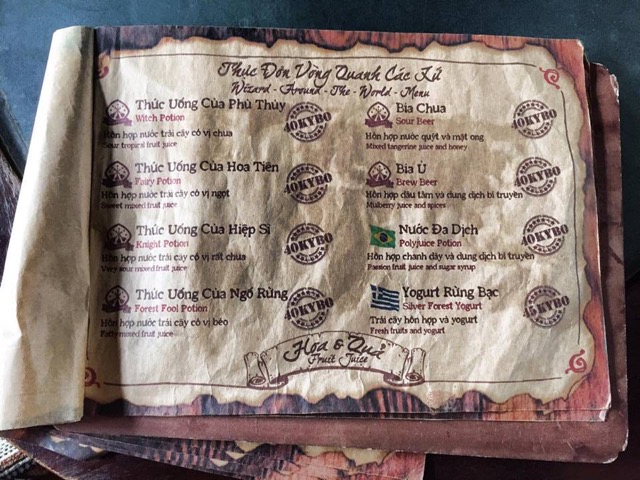 Thực Đơn Vòng Quanh Các Xứ
Wizard - Around - The - World - Menu
Thức Uống Của Phù Thủy
Witch Potion
40KYBO
Hỗn hợp nước trái cây có vị chua
Sour tropical fruit juice
Thức Uống Của Hoa Tiên
Fairy Potion
40KYBO
Hỗn hợp nước trái cây có vị ngọt
Sweet mixed fruit juice
Thức Uống Của Hiệp Sĩ
Knight Potion
40KYBO
Hỗn hợp nước trái cây có vị rất chua
Very sour mixed fruit juice
Thức Uống Của Ngố Rừng
Forest Fool Potion
40KYBO
Hỗn hợp nước trái cây có vị béo
Fatty mixed fruit juice
Bia Chua
Sour Beer
40KYBO
Hỗn hợp nước quýt và mật ong
Mixed tangerine juice and honey
Bia Ủ
Brew Beer
40KYBO
Hỗn hợp dâu tằm và dung dịch bí truyền
Mulberry juice and spices
Nước Đa Dịch
Polyjuice Potion
40KYBO
Hỗn hợp chanh dây và dung dịch bí truyền
Passion fruit juice and sugar syrup
Yogurt Rừng Bạc
Silver Forest Yogurt
45KYBO
Trái cây hỗn hợp và yogurt
Fresh fruits and yogurt
Hoa & Quả
Fruit Juice